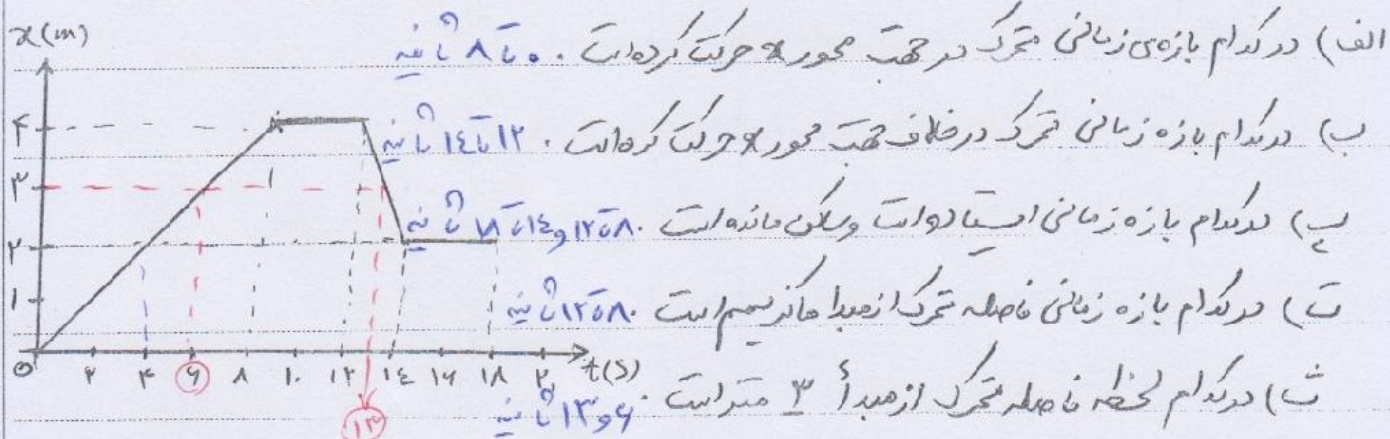 الف) در کدام بازه‌ی زمانی متحرک در جهت محور x حرکت کرده است. ۰ تا ۸ ثانیه
ب) در کدام بازه زمانی متحرک در خلاف جهت محور x حرکت کرده است. ۱۲ تا ۱۴ ثانیه
پ) در کدام بازه زمانی ایستاده است و ساکن مانده است. ۸ تا ۱۲ و ۱۴ تا ۱۸ ثانیه
ت) در کدام بازه زمانی فاصله متحرک از مبدا ماکزیمم است. ۸ تا ۱۲ ثانیه
ث) در کدام لحظه فاصله متحرک از مبدأ ۳ متر است. ۶ و ۱۳ ثانیه
x(m)
۴
۳
۲
۱
۰ ۲ ۴ ۶ ۸ ۱۰ ۱۲ ۱۴ ۱۶ ۱۸ ۲۰ t(s)
۱۳